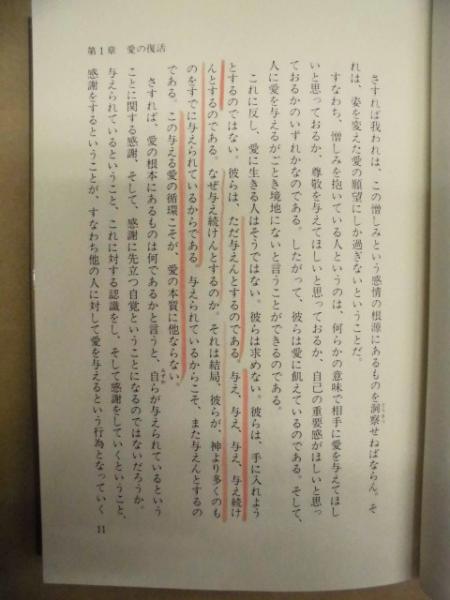 第1章　愛の復活
されば我われは、この憎しみという感情の根源にあるものを洞察せねばならん。そ
どうさつ
れは、姿を変えた愛の願望にしか過ぎないということだ。
すなわち、憎しみを抱いている人というのは、何らかの意味で相手に愛を与えてほし
いと思っておるか、尊敬を与えてほしいと思っておるか、自己の重要感がほしいと思っ
ておるかのいずれかなのである。したがって、彼らは愛に飢えているのである。そして、
人に愛を与えるがごとき境地にないと言うことができるのである。
これに反し、愛に生きる人はそうではない。彼らは求めない。彼らは、手に入れよう
とするのではない。彼らは、ただ与えんとするのである。与え、与え、与え、与え続け
んとするのである。なぜ与え続けんとするのか。それは結局、彼らが、神より多くのも
のをすでに与えられているからである。与えられているからこそ、また与えんとするの
である。この与える愛の循環こそが、愛の本質に他ならない。
さすれば、愛の根本にあるものは何であるかと言うと、自らが与えられているという
みずか
ことに関する感謝、そして、感謝に先立つ自覚ということになるのではないだろうか。
与えられているということ、これに対する認識をし、そして感謝をしていくということ、
感謝をするということが、すなわち他の人に対して愛を与えるという行為となっていく
11